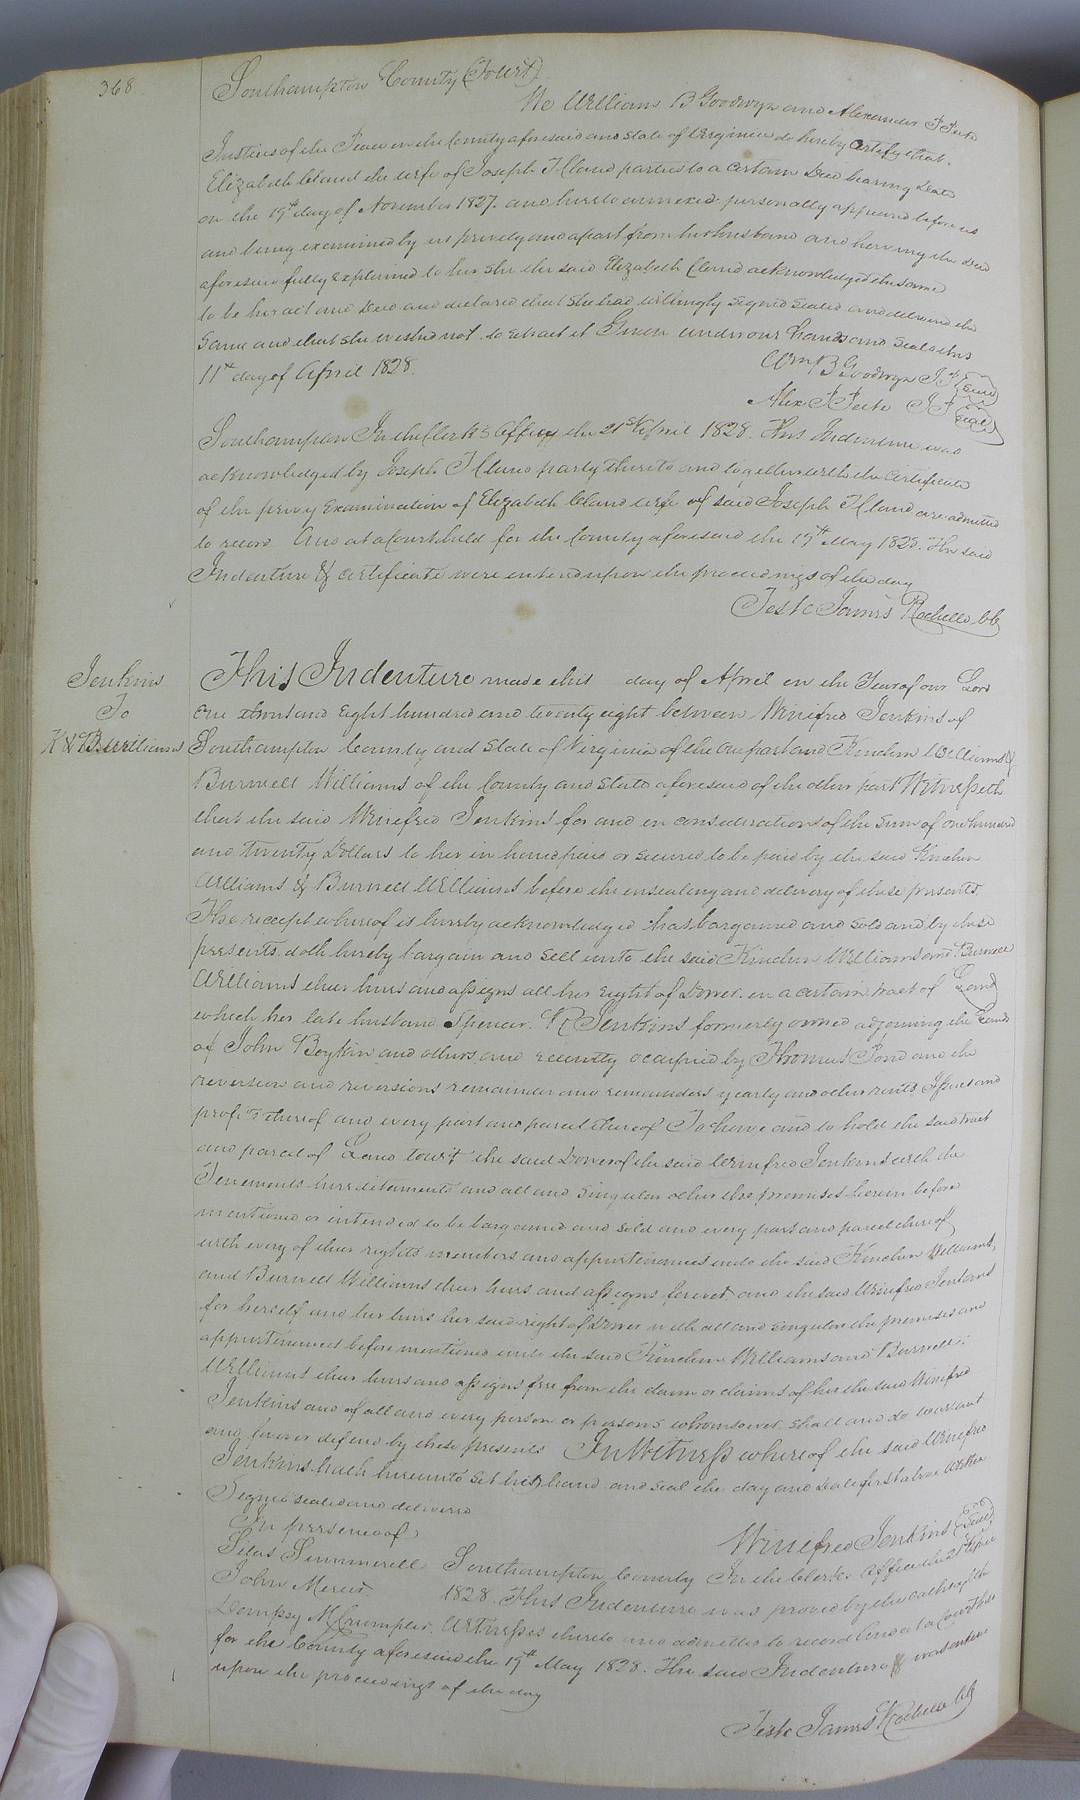 368
Southampton County (To wit)
We William B Goodwyn and Alexander P Peete
Justices of the Peace in the County aforesaid and State of Virginia do hereby Certify that
Elizabeth Claud the wife of Joseph J Claud parties to a certain Deed bearing date
on the 19th day of November 1827. and hereto annexed personally appeared before us
and being examined by us privily and apart from her husband and having the deed
aforesaid fully explained to her she the said Elizabeth Claud acknowledged the same
to be her act and Deed and declared that she had willingly signed sealed and delivered the
same and that she wished not to retract it Given under our hands and seals this
11th day of April 1828.
Wm B Goodwyn J P (Seal)
Alex P Peete J P (Seal)
Southampton In the Clerk's Office the 21st April 1828. This Indenture was
acknowledged by Joseph J Claud party thereto and together with the certificate
of the privy Examination of Elizabeth Claud wife of said Joseph J Claud are admitted
to record And at a Court held for the County aforesaid the 19th May 1828. The said
Indenture & certificate were entered upon the proceedings of the day
Teste James Rochelle Clk
Jenkins
To
K & B. Williams
This Indenture made this day of April in the Year of our Lord
One thousand Eight hundred and twenty eight between Winifred Jenkins of
Southampton County and State of Virginia of the One part and Kinchen Williams &
Burwell Williams of the County and State aforesaid of the other part Witnesseth
that the said Winifred Jenkins for and in consideration of the sum of one hundred
and twenty Dollars to her in hand paid or secured to be paid by the said Kinchen
Williams & Burwell Williams before the ensealing and delivery of these presents
The receipt whereof is hereby acknowledged has bargained and sold and by these
presents doth hereby bargain and sell unto the said Kinchen Williams and Burwell
Williams their heirs and assigns all her right of Dower in a certain tract of Land
which her late husband Spencer R Jenkins formerly owned adjoining the Lands
of John Boykin and others and recently occupied by Thomas Pond and the
reversion and reversions remainder and remainders yearly and other rents Issues and
profits thereof and every part and parcel thereof To have and to hold the said tract
and parcel of Land towit the said Dower of the said Winifred Jenkins with the
Tenements hereditaments and all and singular other the premises herein before
mentioned or intended to be bargained and sold and every part and parcel thereof
with every of their rights members and appurtenances unto the said Kinchen Williams,
and Burwell Williams their heirs and assigns forever and the said Winifred Jenkins
for herself and her heirs her said right of Dower with all and singular the premises and
appurtenances before mentioned unto the said Kinchen Williams and Burwell
Williams their heirs and assigns free from the claim or claims of her the said Winifred
Jenkins and of all and every person or persons whomsoever shall and do warrant
and forever defend by these presents In Witness whereof the said Winifred
Jenkins hath hereunto set her hand and seal the day and date first above written
Signed sealed and delivered
In presence of
Winifred Jenkins (Seal)
Silas Summerell
John Mercer
Dempsy M Crumpler
Southampton County In the Clerks Office the 21st April
1828. This Indenture was proved by the oaths of the
Witnesses thereto and admitted to record And at a Court held
for the County aforesaid the 19th May 1828. The said Indenture was entered
upon the proceedings of the day
Teste James Rochelle Clk